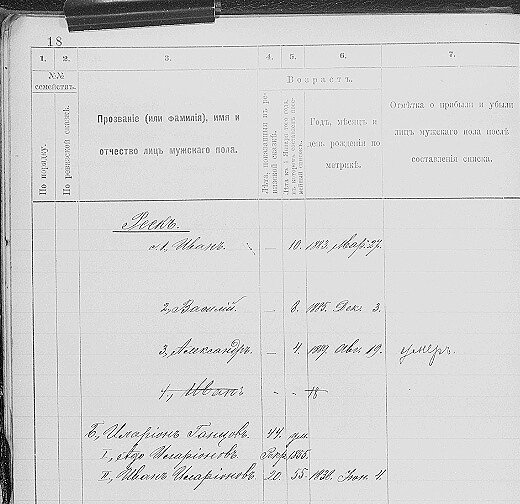 18
1. 2. 3. 4. 5. 6. 7.
№№ семействъ.
По порядку.
По ревизской сказкѣ.
Прозваніе (или фамилія), имя и
отчество лицъ мужского пола.
Возрастъ.
Лѣта, показанныя въ ре-
визской сказкѣ.
Годъ, мѣсяцъ и
день рожденія по
метрикѣ.
Отмѣтка о прибыли и убыли
лицъ мужского пола послѣ
составленія списка.
Роскъ.
1, Иванъ. — 10. 1883. Мар. 27.
2, Василій. — 8. 1885. Дек. 3.
3, Александръ. — 4. 1889 Авг. 19. умеръ.
4, Иванъ - - 18
Б, Иларіонъ 44. ум.
I, Иларіоновъ 1855.
II, Иванъ Иларіоновъ 20. 55. 1838. 4.